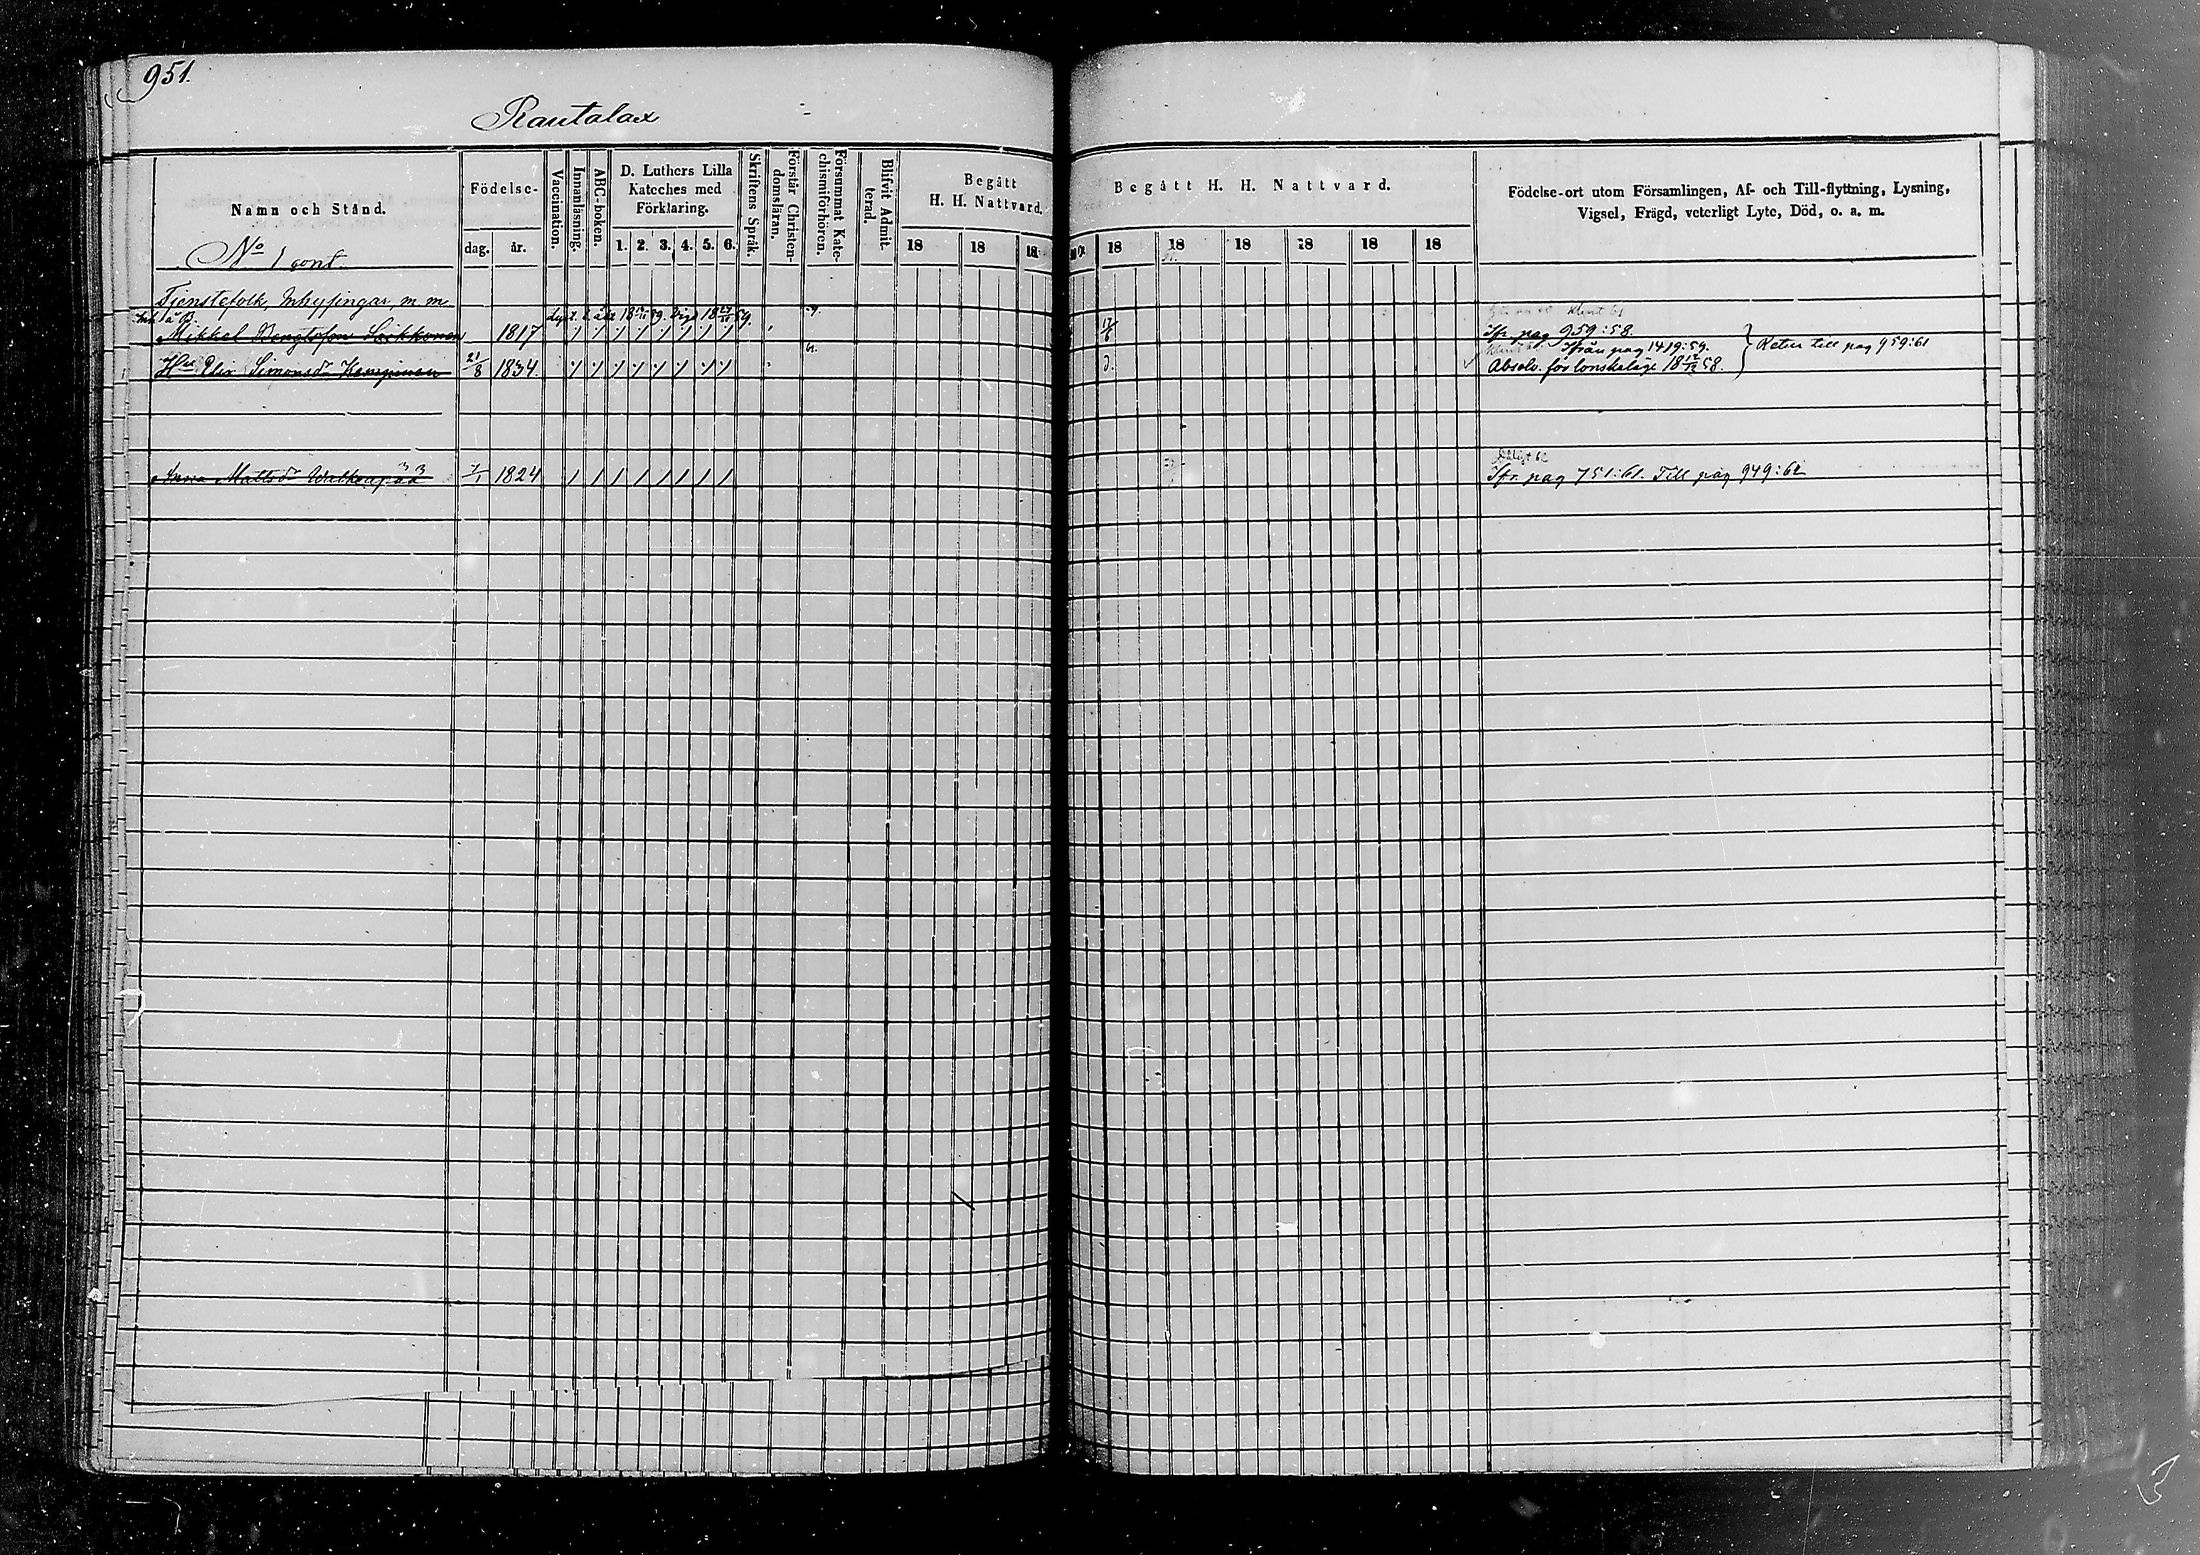 951.
Rautalax
Namn och Stånd.
Födelse-
dag.
år.
Vaccination.
Innanläsning.
ABC-boken.
D. Luthers Lilla
Kateches med
Förklaring.
1. 2. 3. 4. 5. 6.
Skriftens Språk.
Förstår Christen-
domsläran.
Försummat Kate-
chismiförhören.
Blifvit Admit-
terad.
Begått
H. H. Nattvard.
18 18 18
Begått H. H. Nattvard.
18 18 18 18 18 18
Födelse-ort utom Församlingen, Af- och Till-flyttning, Lysning,
Vigsel, Frägd, veterligt Lyte, Död, o. a. m.
No 1 cont.
Tjenstefolk, Inhysingar, m m
Mikkel Bengtsson 1817 Ifr. pag 959:58.
Ifrån pag 1419:59. Retur till pag 959:61
Hu Elin Simonsdr 21/8 1834 Absolv. för lönskaläge 18 12/12 58.
Anna Mattsdr 1824 Ifr. pag 751:61. Till pag 949:62